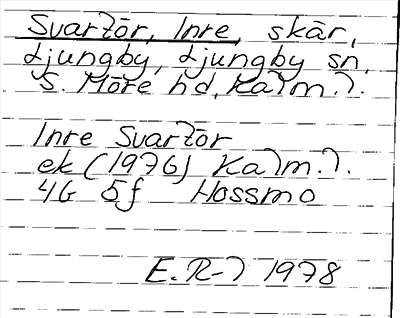 Svartör, Inre, skär,
Ljungby, Ljungby sn,
S. Möre hd, Kalm. l.
Inre Svartör
ek (1976) Kalm. l.
4G 5f Hossmo
E. R-l 1978